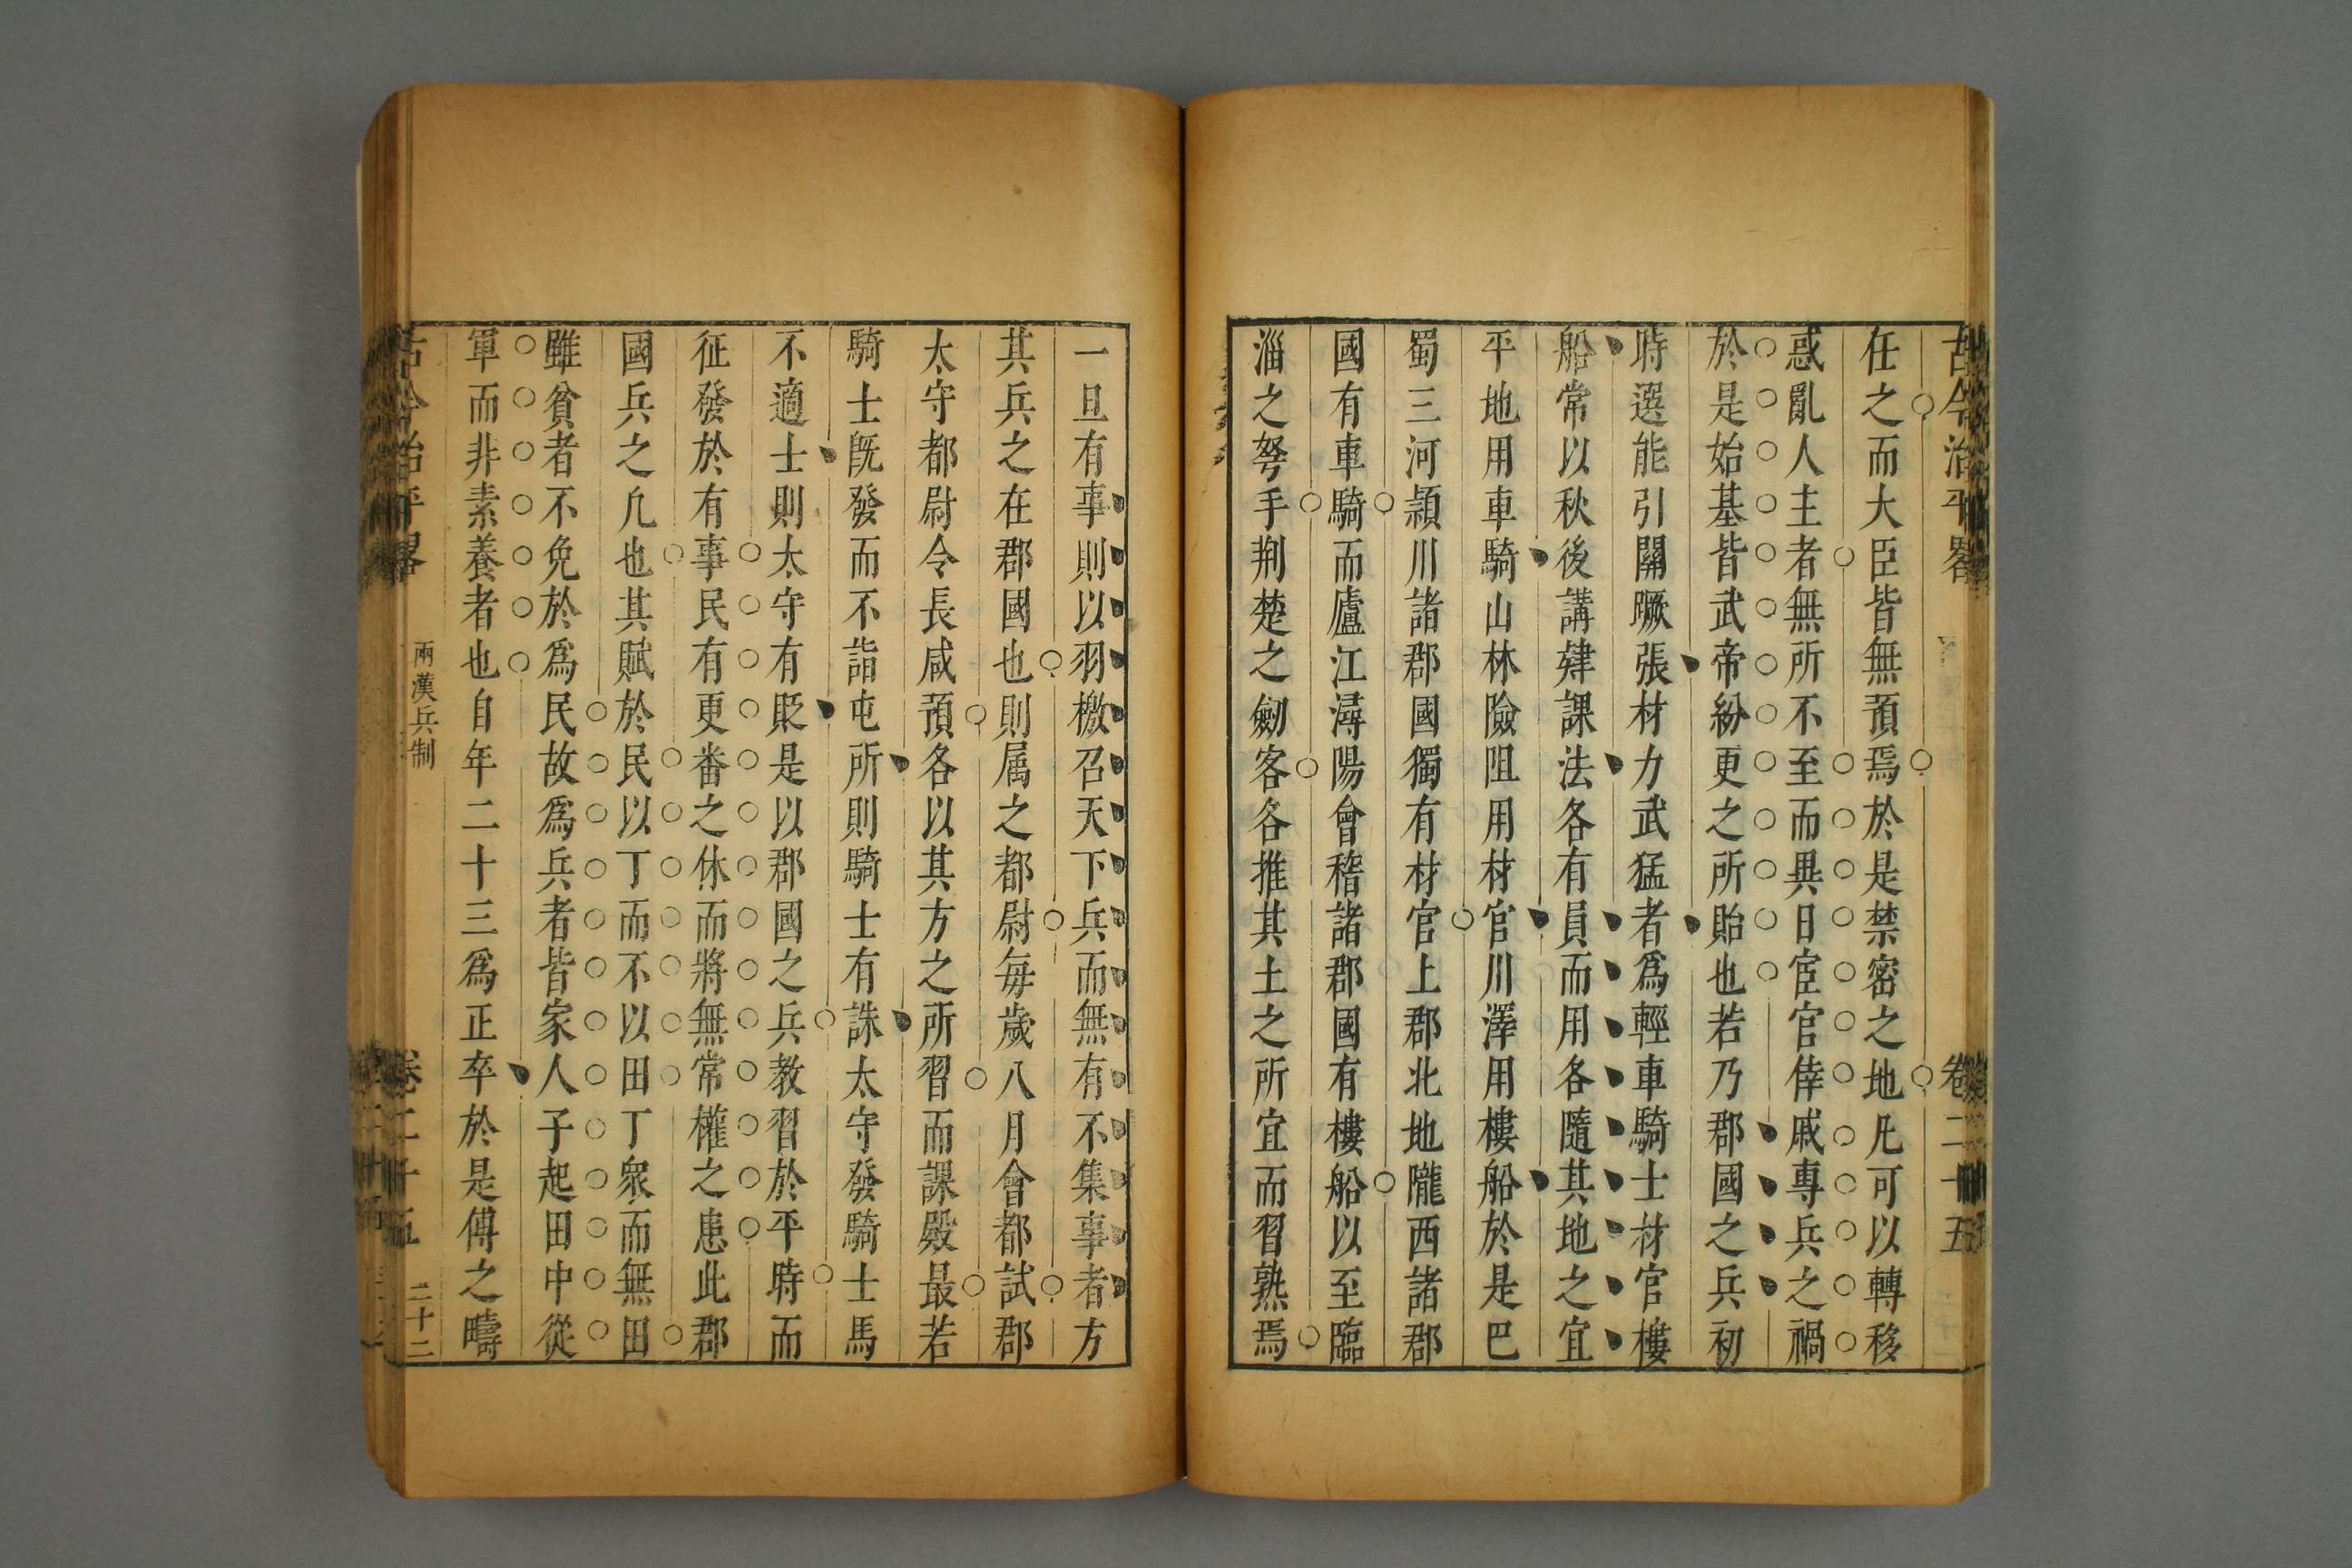 古今治平畧 卷二十五
任之而大臣皆無預焉於是禁密之地凡可以轉移
惑亂人主者無所不至而異日宦官倖戚專兵之禍
於是始基皆武帝紛更之所貽也若乃郡國之兵初
時選能引關蹶張材力武猛者爲輕車騎士材官樓
船常以秋後講肄課法各有員而用各隨其地之宜
平地用車騎山林險阻用材官川澤用樓船於是巴
蜀三河潁川諸郡國獨有材官上郡北地隴西諸郡
國有車騎而廬江潯陽會稽諸郡國有樓船以至臨
淄之弩手荆楚之劍客各推其土之所宜而習熟焉
一旦有事則以羽檄召天下兵而無有不集事者方
其兵之在郡國也則属之都尉每歲八月會都試郡
太守都尉令長咸預各以其方之所習而課殿最若
騎士旣發而不詣屯所則騎士有誅太守發騎士馬
不適士則太守有貶是以郡國之兵教習於平時而
征發於有事民有更番之休而將無常權之患此郡
國兵之凢也其賦於民以丁而不以田丁衆而無田
雖貧者不免於爲民故爲兵者皆家人子起田中從
軍而非素養者也自年二十三爲正卒於是傅之疇
古今治平畧 兩漢兵制 卷二十五 二十二